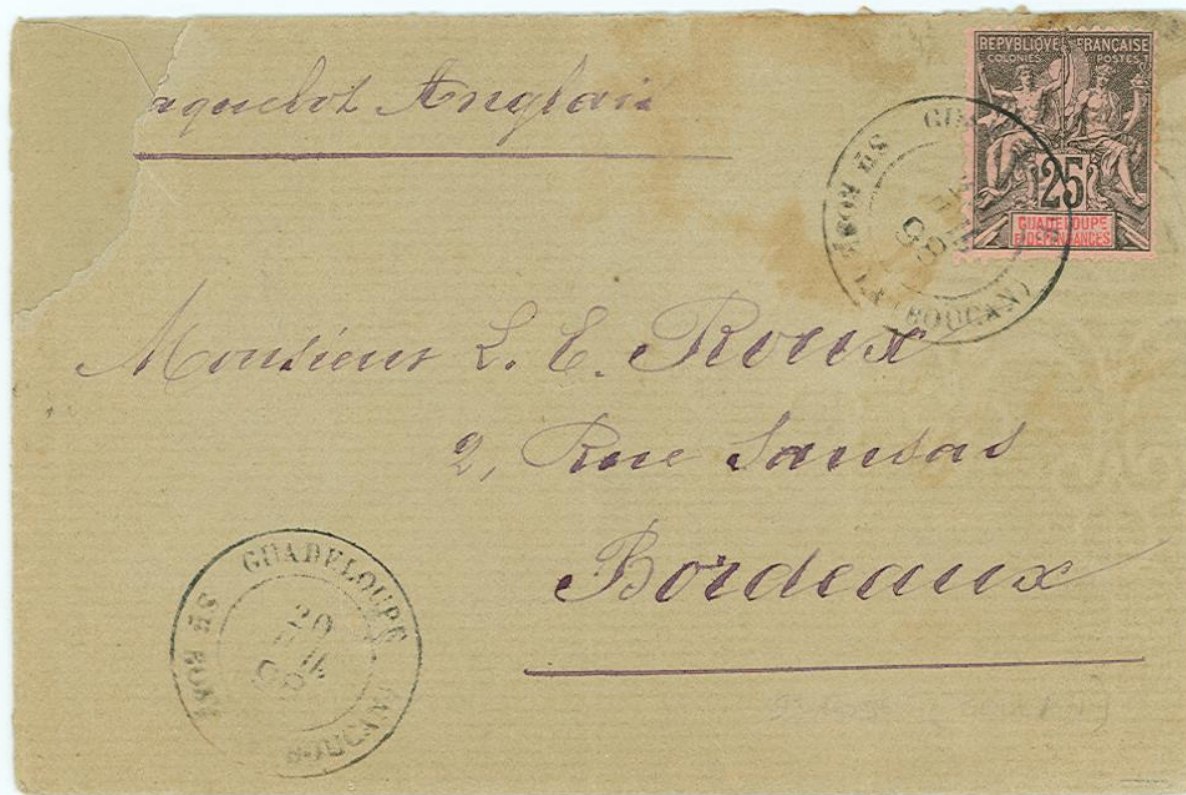 aquebot Anglais
REPVBLIQVE FRANÇAISE
COLONIES POSTES
25
GUADELOUPE
ET DÉPENDANCES
STE ROSE (BOUCAN)
Monsieur L. E. Roux
2, Rue Sansas
Bordeaux
GUADELOUPE
STE ROSE
BOUCAN
20